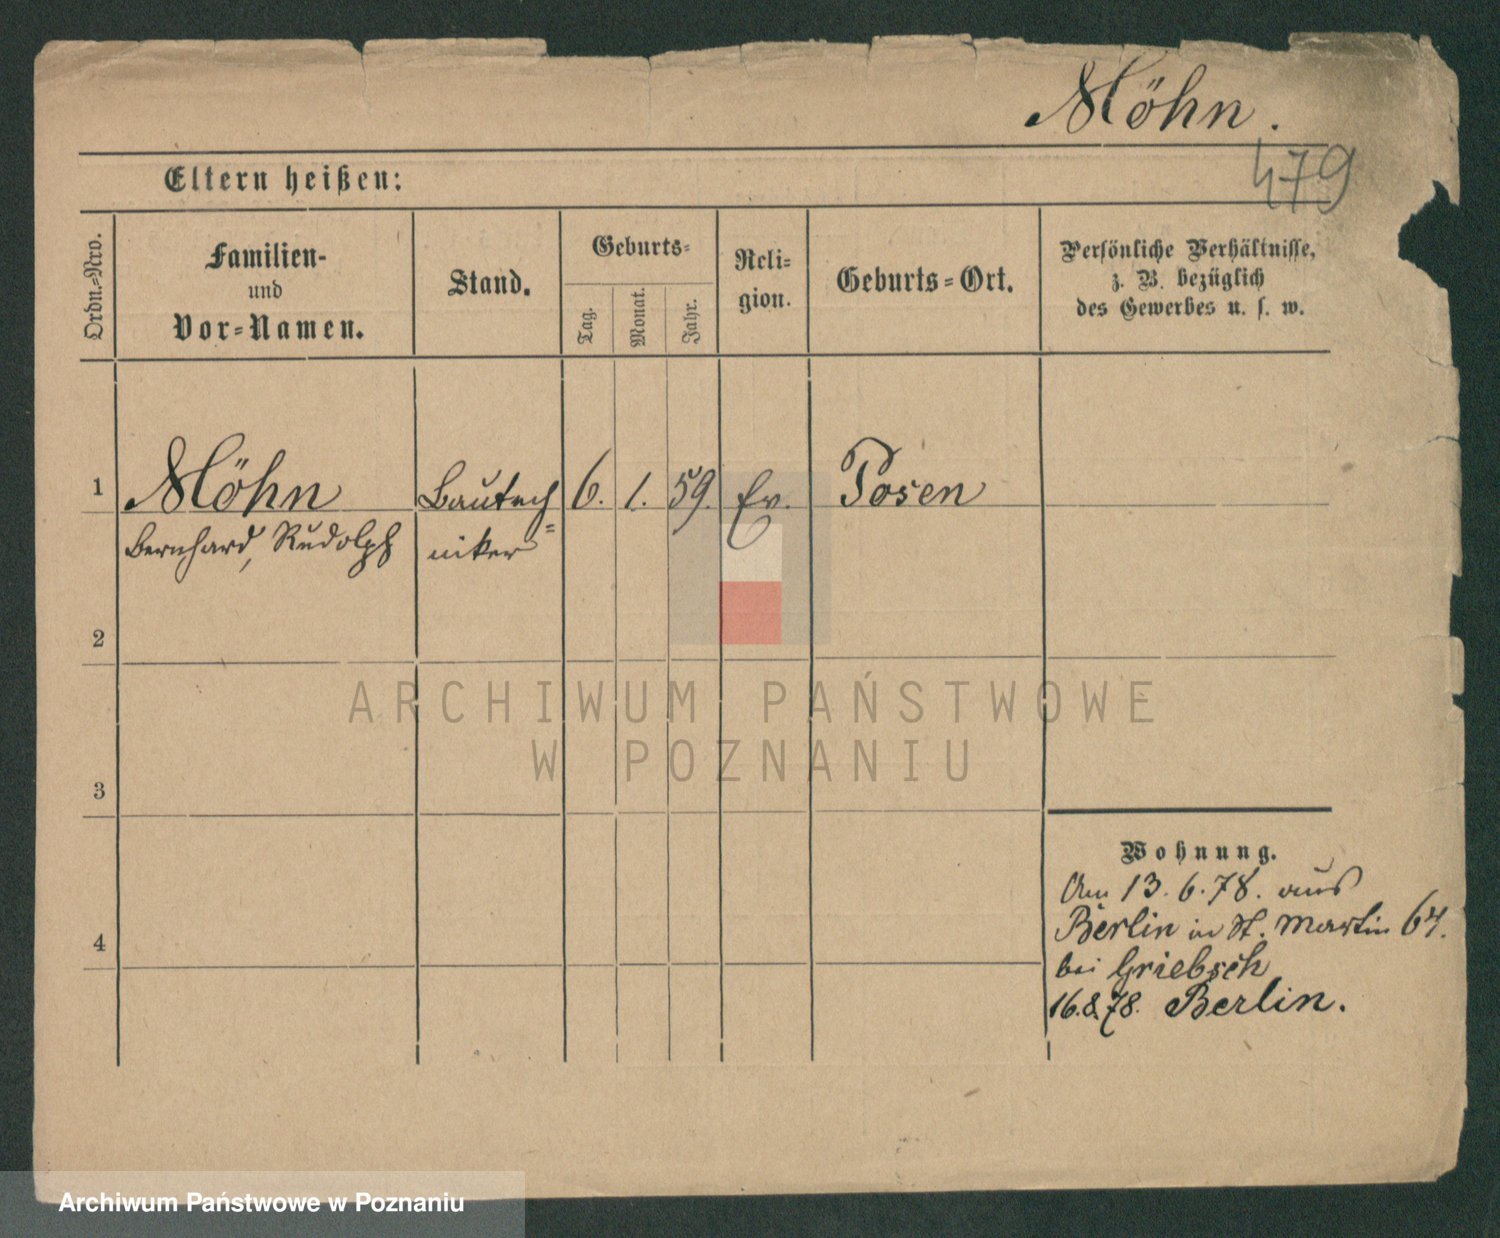 Möhn.
479
Eltern heißen:
Ordn.-Nro.
Familien-
und
Vor-Namen.
Stand.
Geburts-
Tag.
Monat.
Jahr.
Reli-
gion.
Geburts-Ort.
Persönliche Verhältnisse,
z. B. bezüglich
des Gewerbes u. s. w.
1 Möhn Bautech 6. 1. 59. Ev. Posen
Bernhard, Rudolph =niker
2
3
4
Wohnung.
Am 13.6.78. aus
Berlin in St. Martin 64.
bei Griebsch
16.8.78. Berlin.
ARCHIWUM PAŃSTWOWE
W POZNANIU
Archiwum Państwowe w Poznaniu